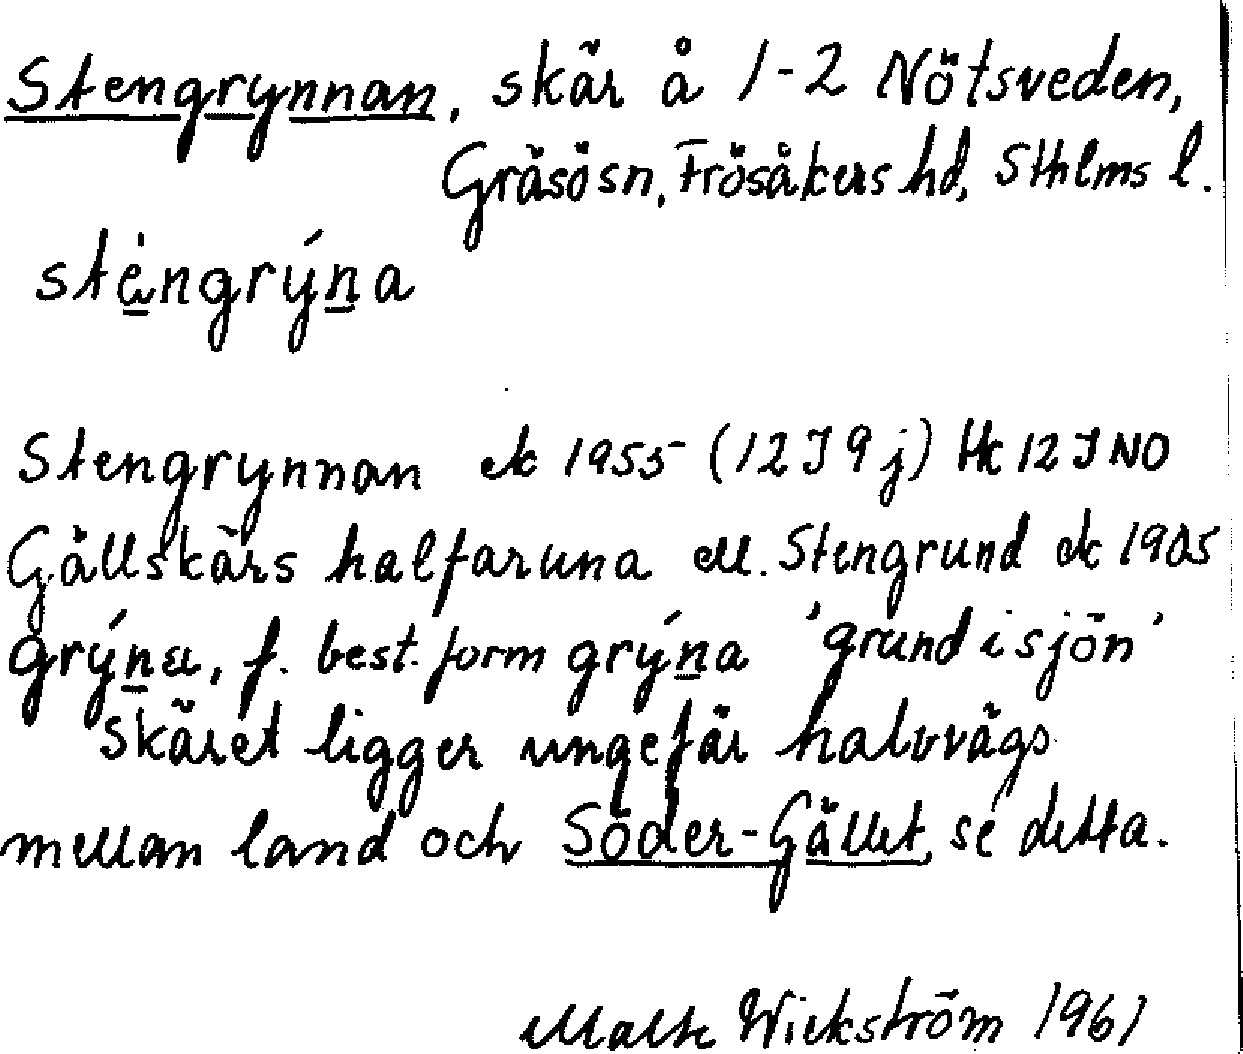 Stengrynnan, skär å 1-2 Nötsveden,
Gräsö sn, Frösåkers hd, Sthlms l.
stèngrýna
Stengrynnan ek 1955 (12J 9j) Hk 12J NO
Gällskärs halfaruna ell. Stengrund ek 1905
grýna, f. best. form grýna 'grund i sjön'
Skäret ligger ungefär halvvägs
mellan land och Söder-Gället, se detta.
Malte Wickström 1961